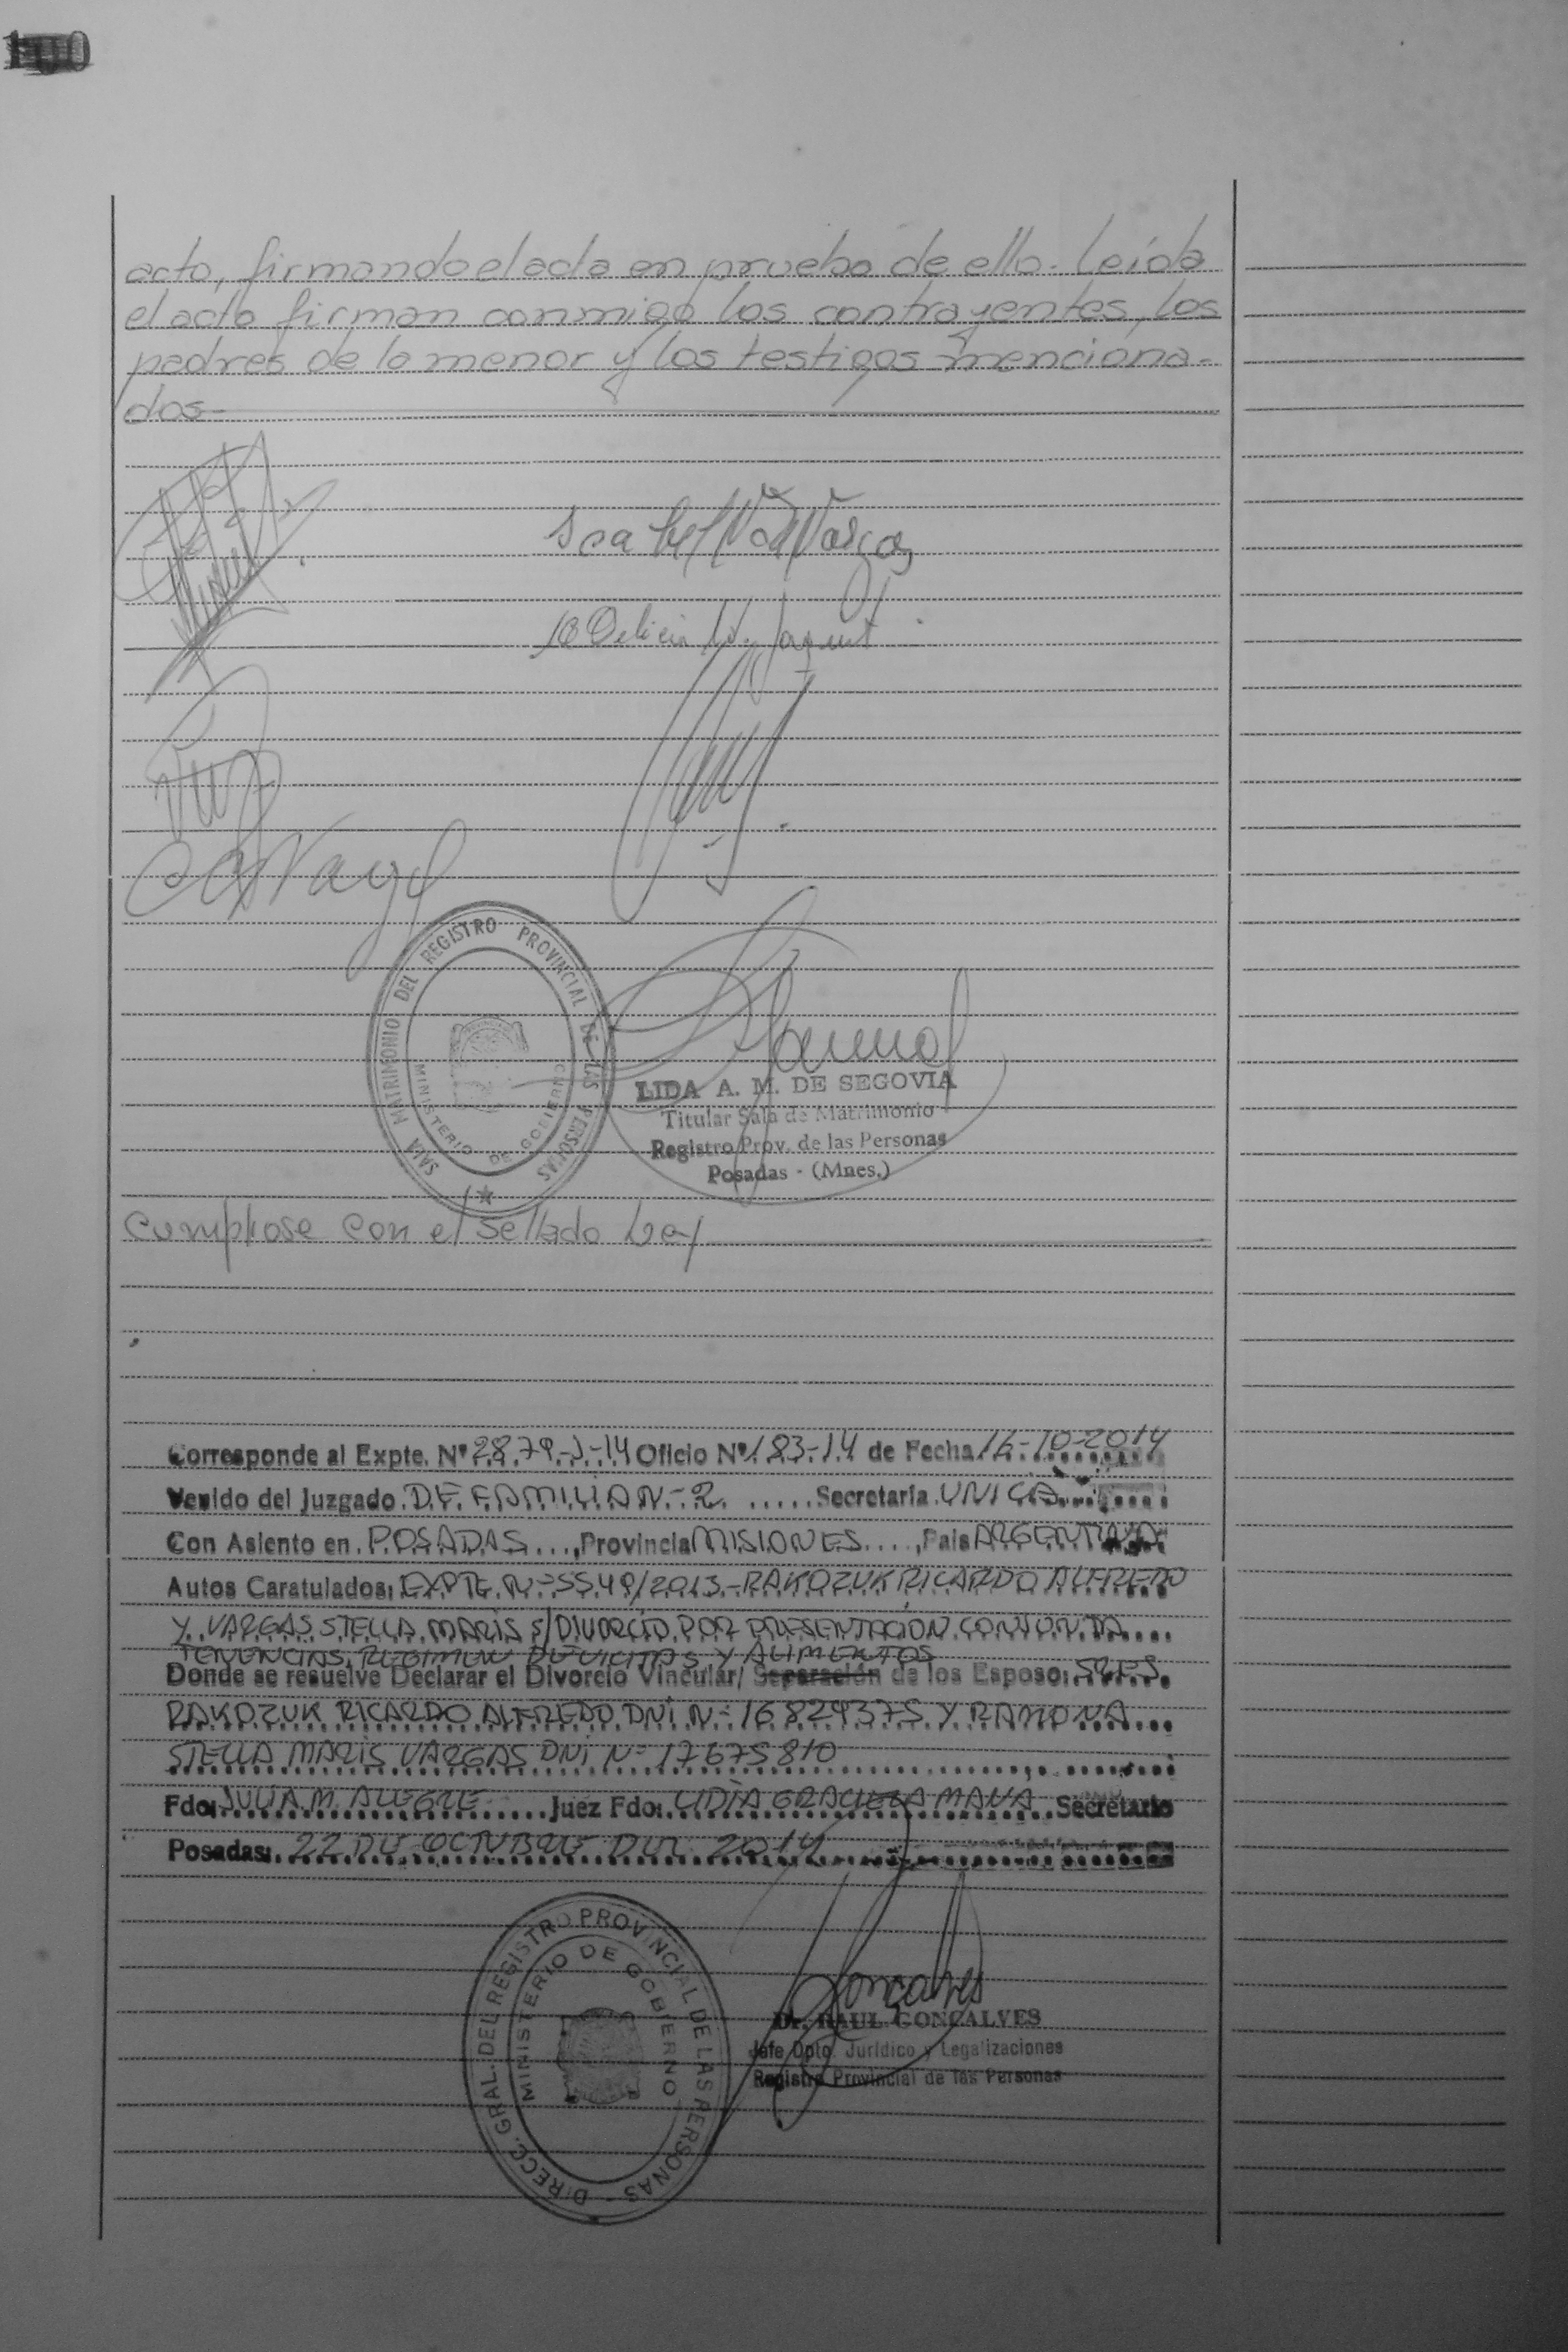 100
acto, firmando el acta en prueba de ello. Leída
el acta firman conmigo los contrayentes, los
padres de la menor y los testigos menciona-
dos-
SALA MATRIMONIO DEL REGISTRO PROVINCIAL DE LAS PERSONAS
MINISTERIO DE GOBIERNO
LIDA A. M. DE SEGOVIA
Titular Sala de Matrimonio
Registro Prov. de las Personas
Posadas - (Mnes.)
Cumplose con el sellado Ley
Corresponde al Expte. Nº 2879-J-14 Oficio Nº 183-14 de Fecha 16-10-2014
Venido del Juzgado DE FAMILIA N-2 Secretaria UNICA
Con Asiento en POSADAS, Provincia MISIONES, Pais ARGENTINA
Autos Caratulados: EXPTE. Nº 5549/2013.-RAKOZUK RICARDO ALFREDO
Y VARGAS STELLA MARIS S/DIVORCIO POR PRESENTACION CONJUNTA
TENENCIAS, REGIMEN DE VICITAS Y ALIMENTOS
Donde se resuelve Declarar el Divorcio Vincular/ Separación de los Esposo: SRES.
RAKOZUK RICARDO ALFREDO DNI Nº 16829375 Y RAMONA
STELLA MARIS VARGAS DNI Nº 17675810
Fdo: JULIA M. ALEGRE Juez Fdo: LIDIA GRACIELA MANA Secretario
Posadas: 22 DE OCTUBRE DEL 2014
DIRECC. GRAL. DEL REGISTRO PROVINCIAL DE LAS PERSONAS
MINISTERIO DE GOBIERNO
Dr. RAUL GONCALVES
Jefe Dpto. Jurídico y Legalizaciones
Registro Provincial de las Personas